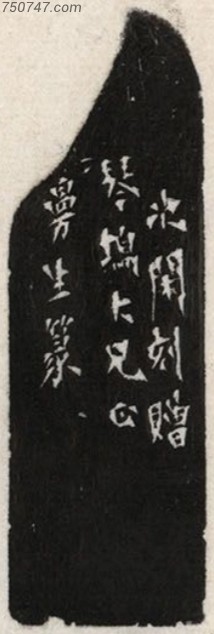 750747.com
次閑刻贈
琴塢大兄
曼生篆